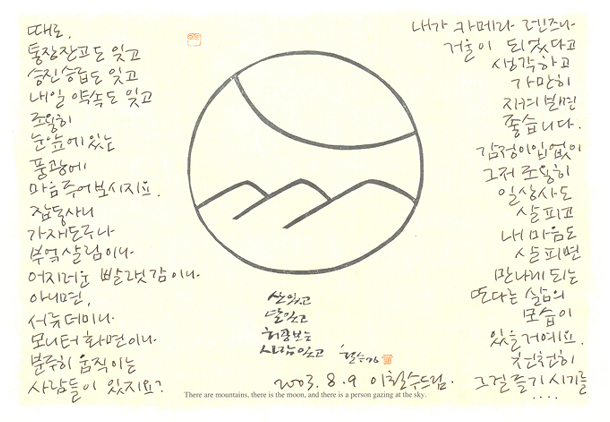 때로,
통장잔고도 잊고
승진 승급도 잊고
내일 약속도 잊고
조용히
눈앞에 있는
풍광에
마음 주어 보시지요.
잡동사니
가재도구나
부엌 살림이나
어지러운 빨랫감이나
아니면,
서류더미나
모니터 화면이나
분주히 움직이는
사람들이 있지요?
내가 카메라 렌즈나
거울이 되었다고
생각하고
가만히
지켜보면
좋습니다.
감정이입 없이
그저 조용히
일상사도
살피고
내 마음도
살피면
만나게 되는
또 다른 삶의
모습이
있을거예요.
천천히
그걸 즐기시기를
....
산 있고
달 있고
허공 보는
사람 있고
2003. 8. 9 이철수 드림.
There are mountains, there is the moon, and there is a person gazing at the sky.